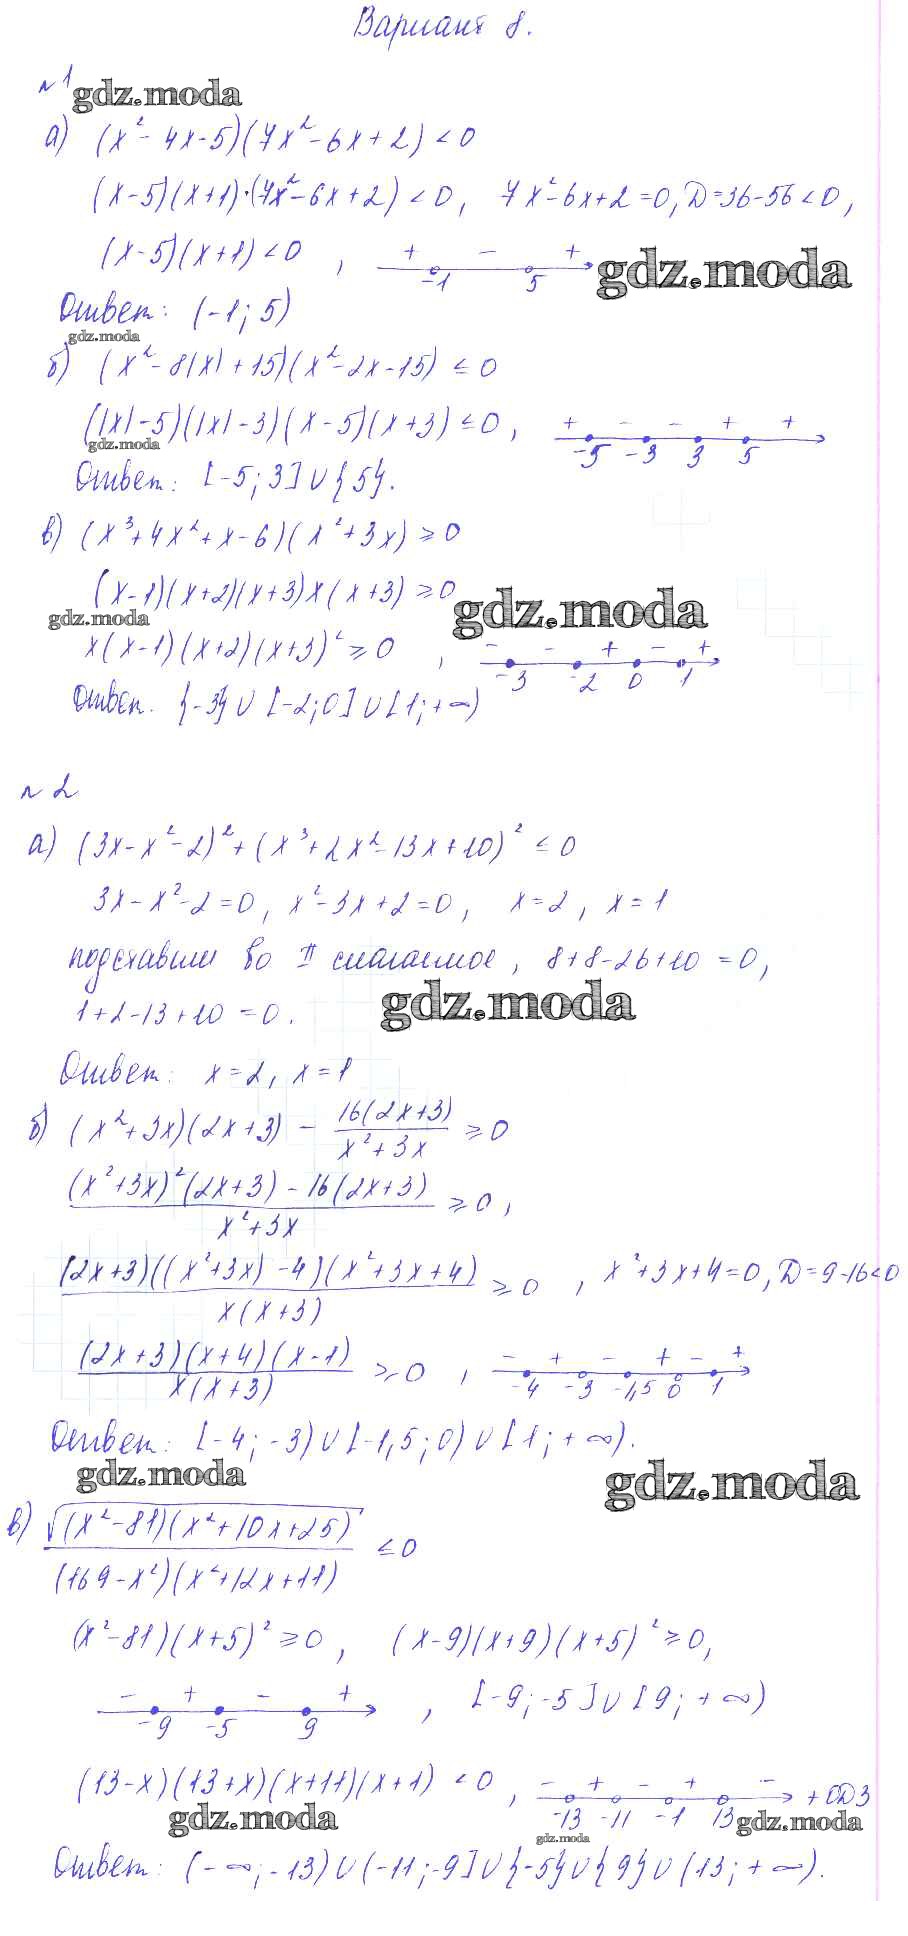 Вариант 8.
№1
gdz.moda
а) (x² - 4x - 5)(7x² - 6x + 2) < 0
(x-5)(x+1)·(7x² - 6x + 2) < 0, 7x² - 6x + 2 = 0, D = 36 - 56 < 0,
(x-5)(x+1) < 0 , + - + -1 5
gdz.moda
Ответ: (-1; 5)
gdz.moda
б) (x² - 8|x| + 15)(x² - 2x - 15) ≤ 0
(|x| - 5)(|x| - 3)(x - 5)(x + 3) ≤ 0, + - - + + -5 -3 3 5
gdz.moda
Ответ: [-5; 3] ∪ {5}.
в) (x³ + 4x² + x - 6)(x² + 3x) ≥ 0
(x-1)(x+2)(x+3)x(x+3) ≥ 0
gdz.moda
gdz.moda
x(x-1)(x+2)(x+3)² ≥ 0 , - - + - + -3 -2 0 1
Ответ. {-3} ∪ [-2; 0] ∪ [1; +∞)
№2
а) (3x - x² - 2)² + (x³ + 2x² - 13x + 10)² ≤ 0
3x - x² - 2 = 0, x² - 3x + 2 = 0, x = 2, x = 1
подставим во II слагаемое, 8 + 8 - 26 + 10 = 0,
1 + 2 - 13 + 10 = 0.
gdz.moda
Ответ: x = 2, x = 1
б) (x² + 3x)(2x + 3) - 16(2x+3)/(x² + 3x) ≥ 0
((x² + 3x)²(2x + 3) - 16(2x + 3))/(x² + 3x) ≥ 0,
(2x+3)((x² + 3x) - 4)(x² + 3x + 4)/(x(x+3)) ≥ 0 , x² + 3x + 4 = 0, D = 9 - 16 < 0
(2x+3)(x+4)(x-1)/(x(x+3)) ≥ 0 , - + - + - + -4 -3 -1,5 0 1
Ответ: [-4; -3) ∪ [-1,5; 0) ∪ [1; +∞).
gdz.moda
gdz.moda
в) √((x² - 81)(x² + 10x + 25))/((169 - x²)(x² + 12x + 11)) ≤ 0
(x² - 81)(x + 5)² ≥ 0, (x - 9)(x + 9)(x + 5)² ≥ 0,
- + - + -9 -5 9 , [-9; -5] ∪ [9; +∞)
(13 - x)(13 + x)(x + 11)(x + 1) < 0 , - + - + - -13 -11 -1 13 + ОДЗ
gdz.moda
gdz.moda
gdz.moda
Ответ: (-∞; -13) ∪ (-11; -9] ∪ {-5} ∪ {9} ∪ (13; +∞).